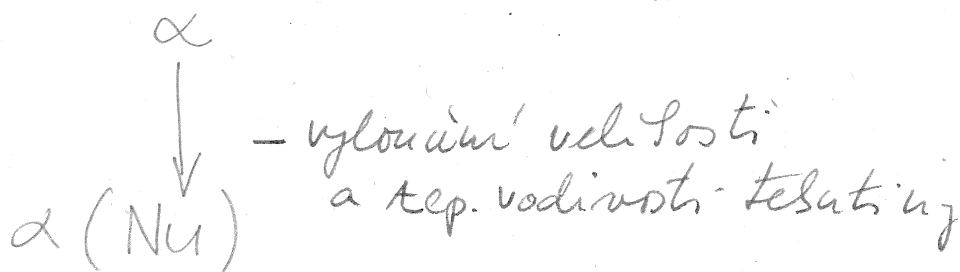 α
– vyloučení velikosti
a tep. vodivosti tekutiny
α (Nu)